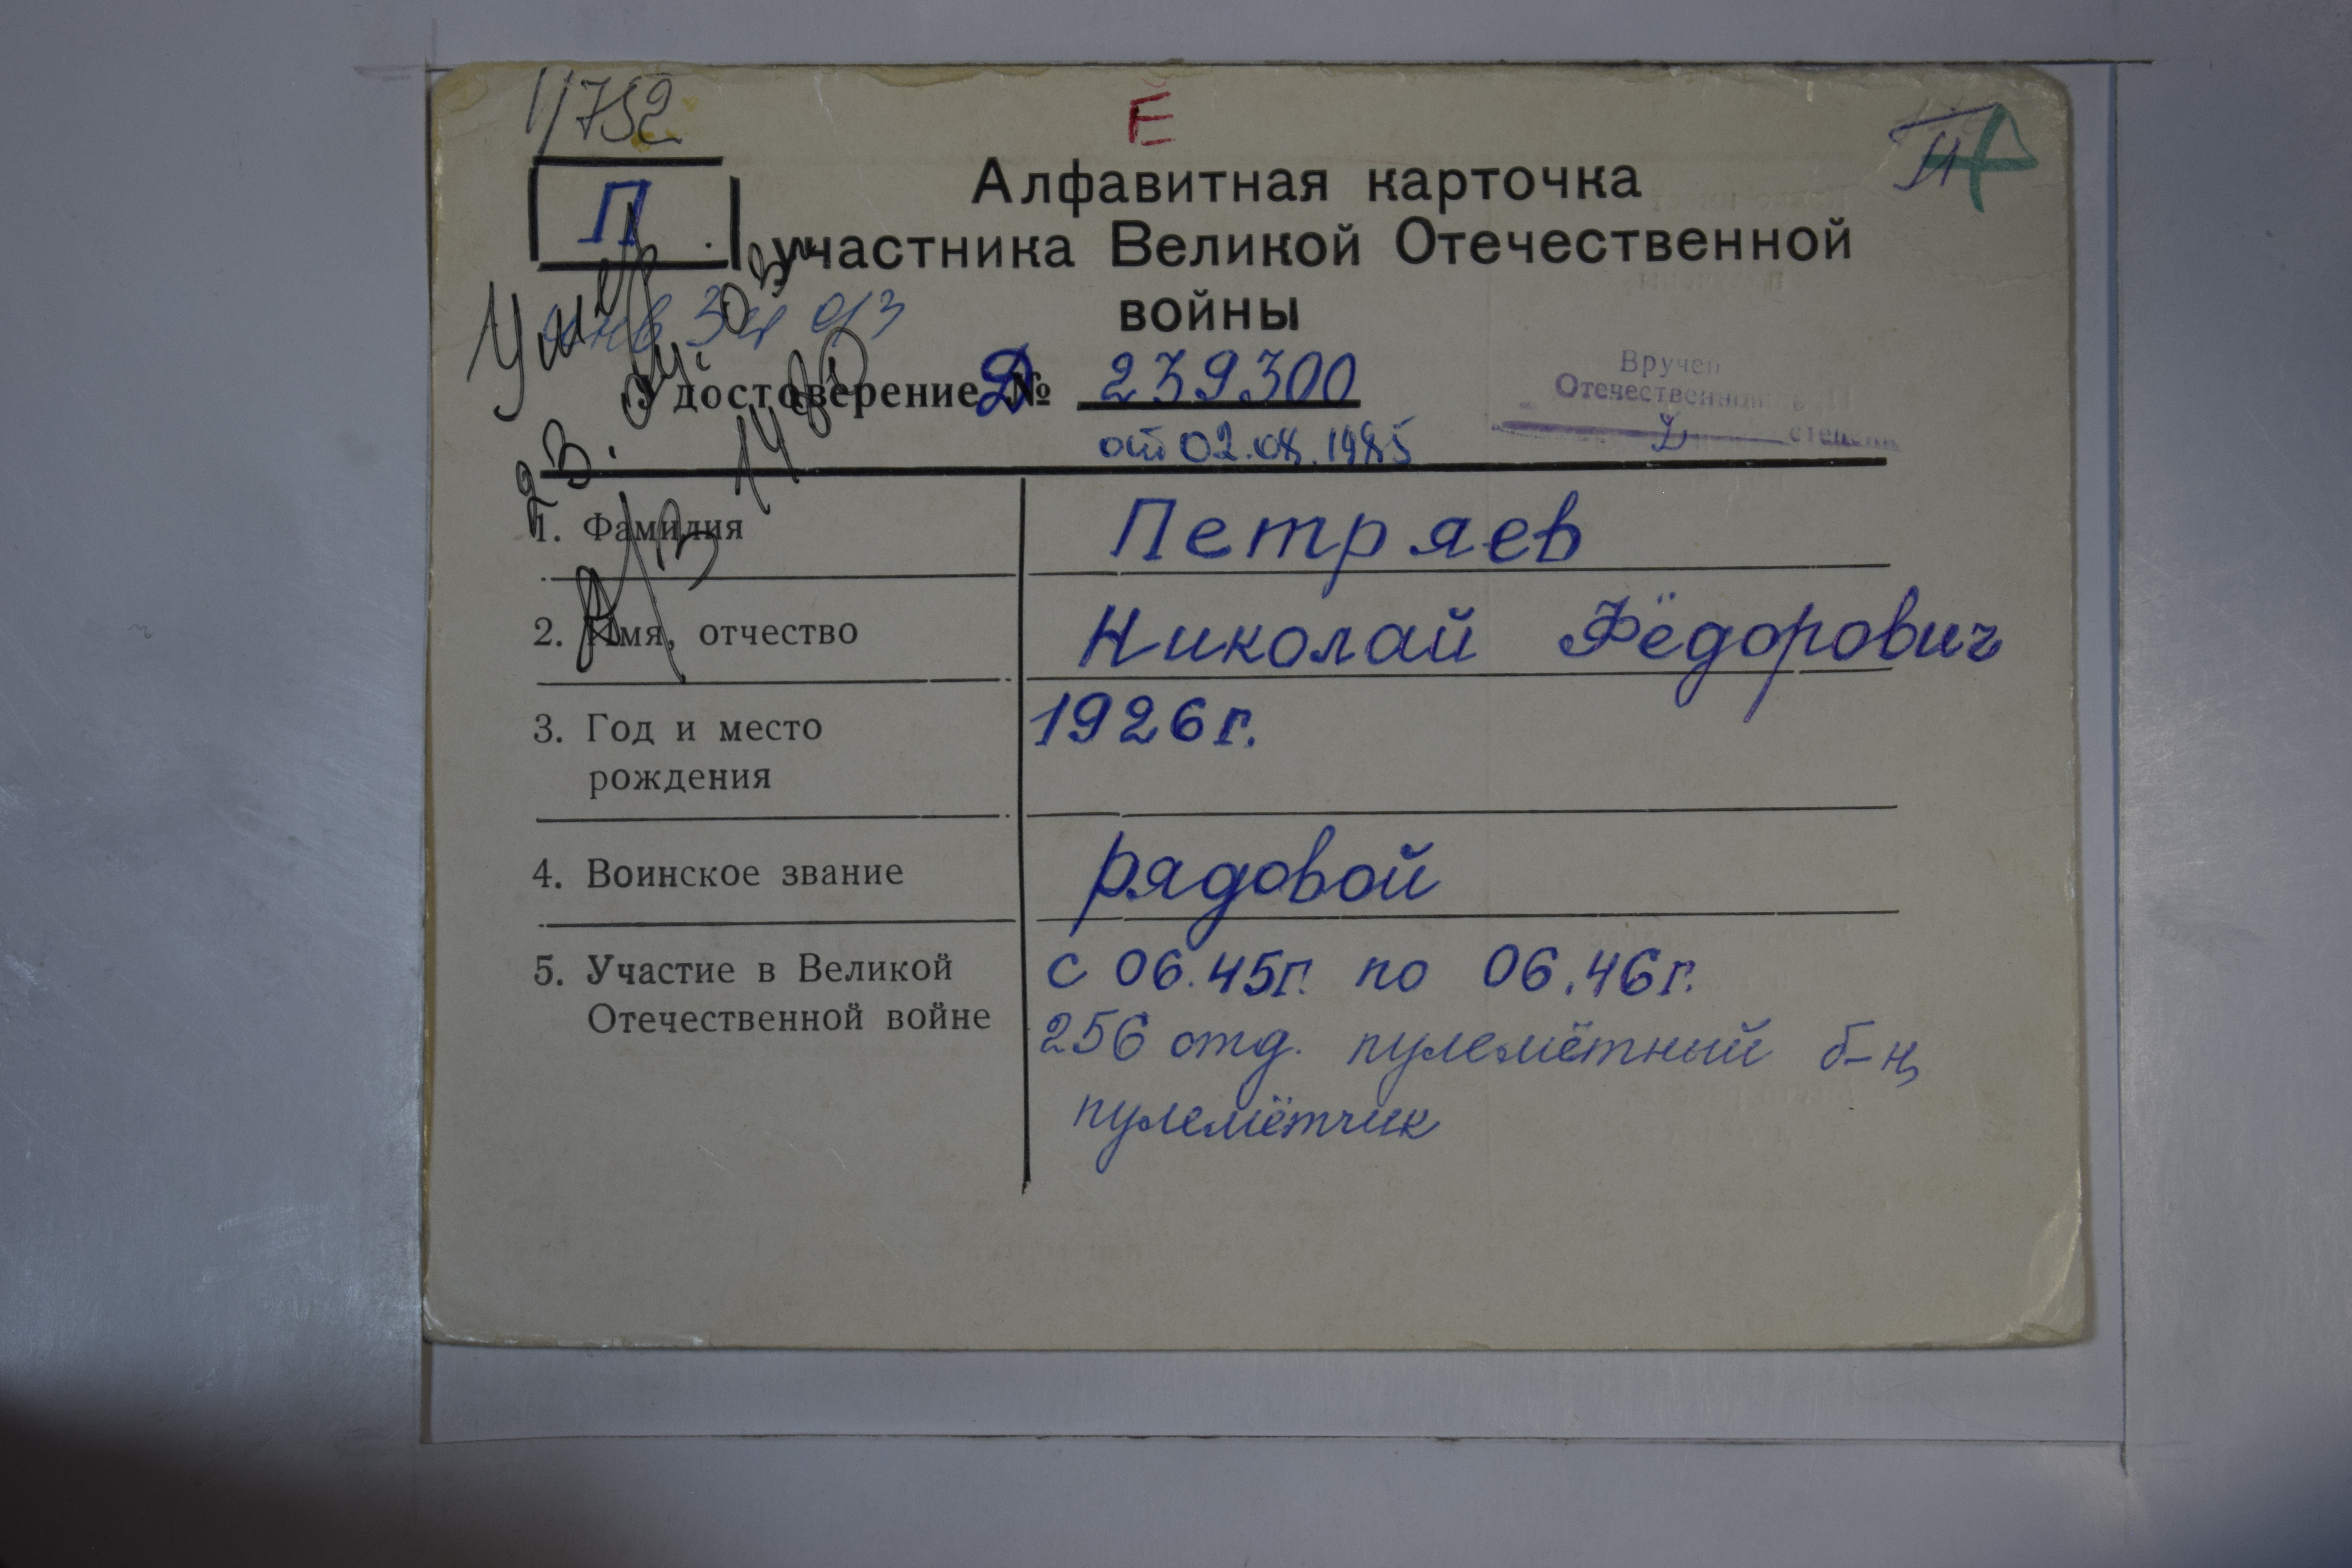 1/752
Ё
II
П
Алфавитная карточка
участника Великой Отечественной
войны
Умер
Удостоверение Д № 239300
от 02.08.1985
Вручен
Отечественной
степени
1. Фамилия Петряев
2. Имя, отчество Николай Фёдорович
3. Год и место 1926г.
рождения
4. Воинское звание рядовой
5. Участие в Великой с 06.45г. по 06.46г.
Отечественной войне 256 отд. пулемётный б-н,
пулемётчик